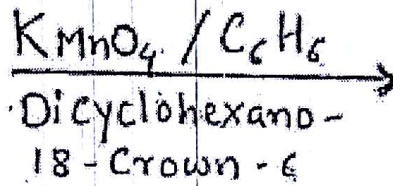 KMnO4 / C6H6
Dicyclohexano-
18-Crown-6